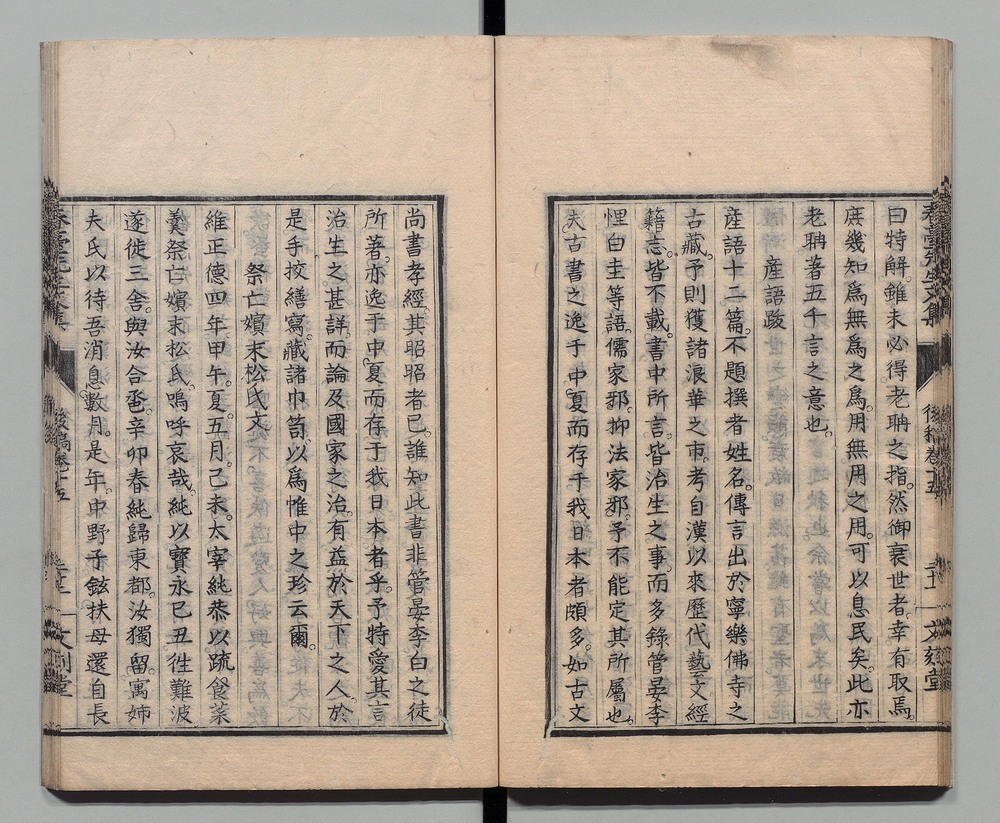 曰特解雖未必得老聃之指。然御衰世者幸有取焉。
庶幾知爲無爲之爲。用無用之用。可以息民矣。此亦
老聃著五千言之意也。
産語跋
産語十二篇。不題撰者姓名。傳言出於寧樂佛寺之
古藏。予則獲諸浪華之市。考自漢以來歷代藝文經
籍志。皆不載。書中所言。皆治生之事。而多錄管晏李
悝白圭等語。儒家邪。抑法家邪。予不能定其所屬也。
夫古書之逸于中夏而存于我日本者頗多。如古文
春臺先生文集
後稿卷十五
尚書孝經。其昭昭者已。誰知此書非管晏李白之徒
所著。亦逸于中夏而存于我日本者乎。予特愛其言
治生之甚詳。而論及國家之治。有益於天下之人。於
是手挍繕寫。藏諸巾笥。以爲帷中之珍云爾。
祭亡嬪末松氏文
維正德四年甲午。夏五月己未。太宰純恭以疏食菜
羹祭亡嬪末松氏。嗚呼哀哉。純以寶永己丑徃難波
遂徙三舍。與汝合卺。辛卯春純歸東都。汝獨留。寓姉
夫氏以待吾消息。數月。是年。中野子鉉扶母還自長
後稿卷十五